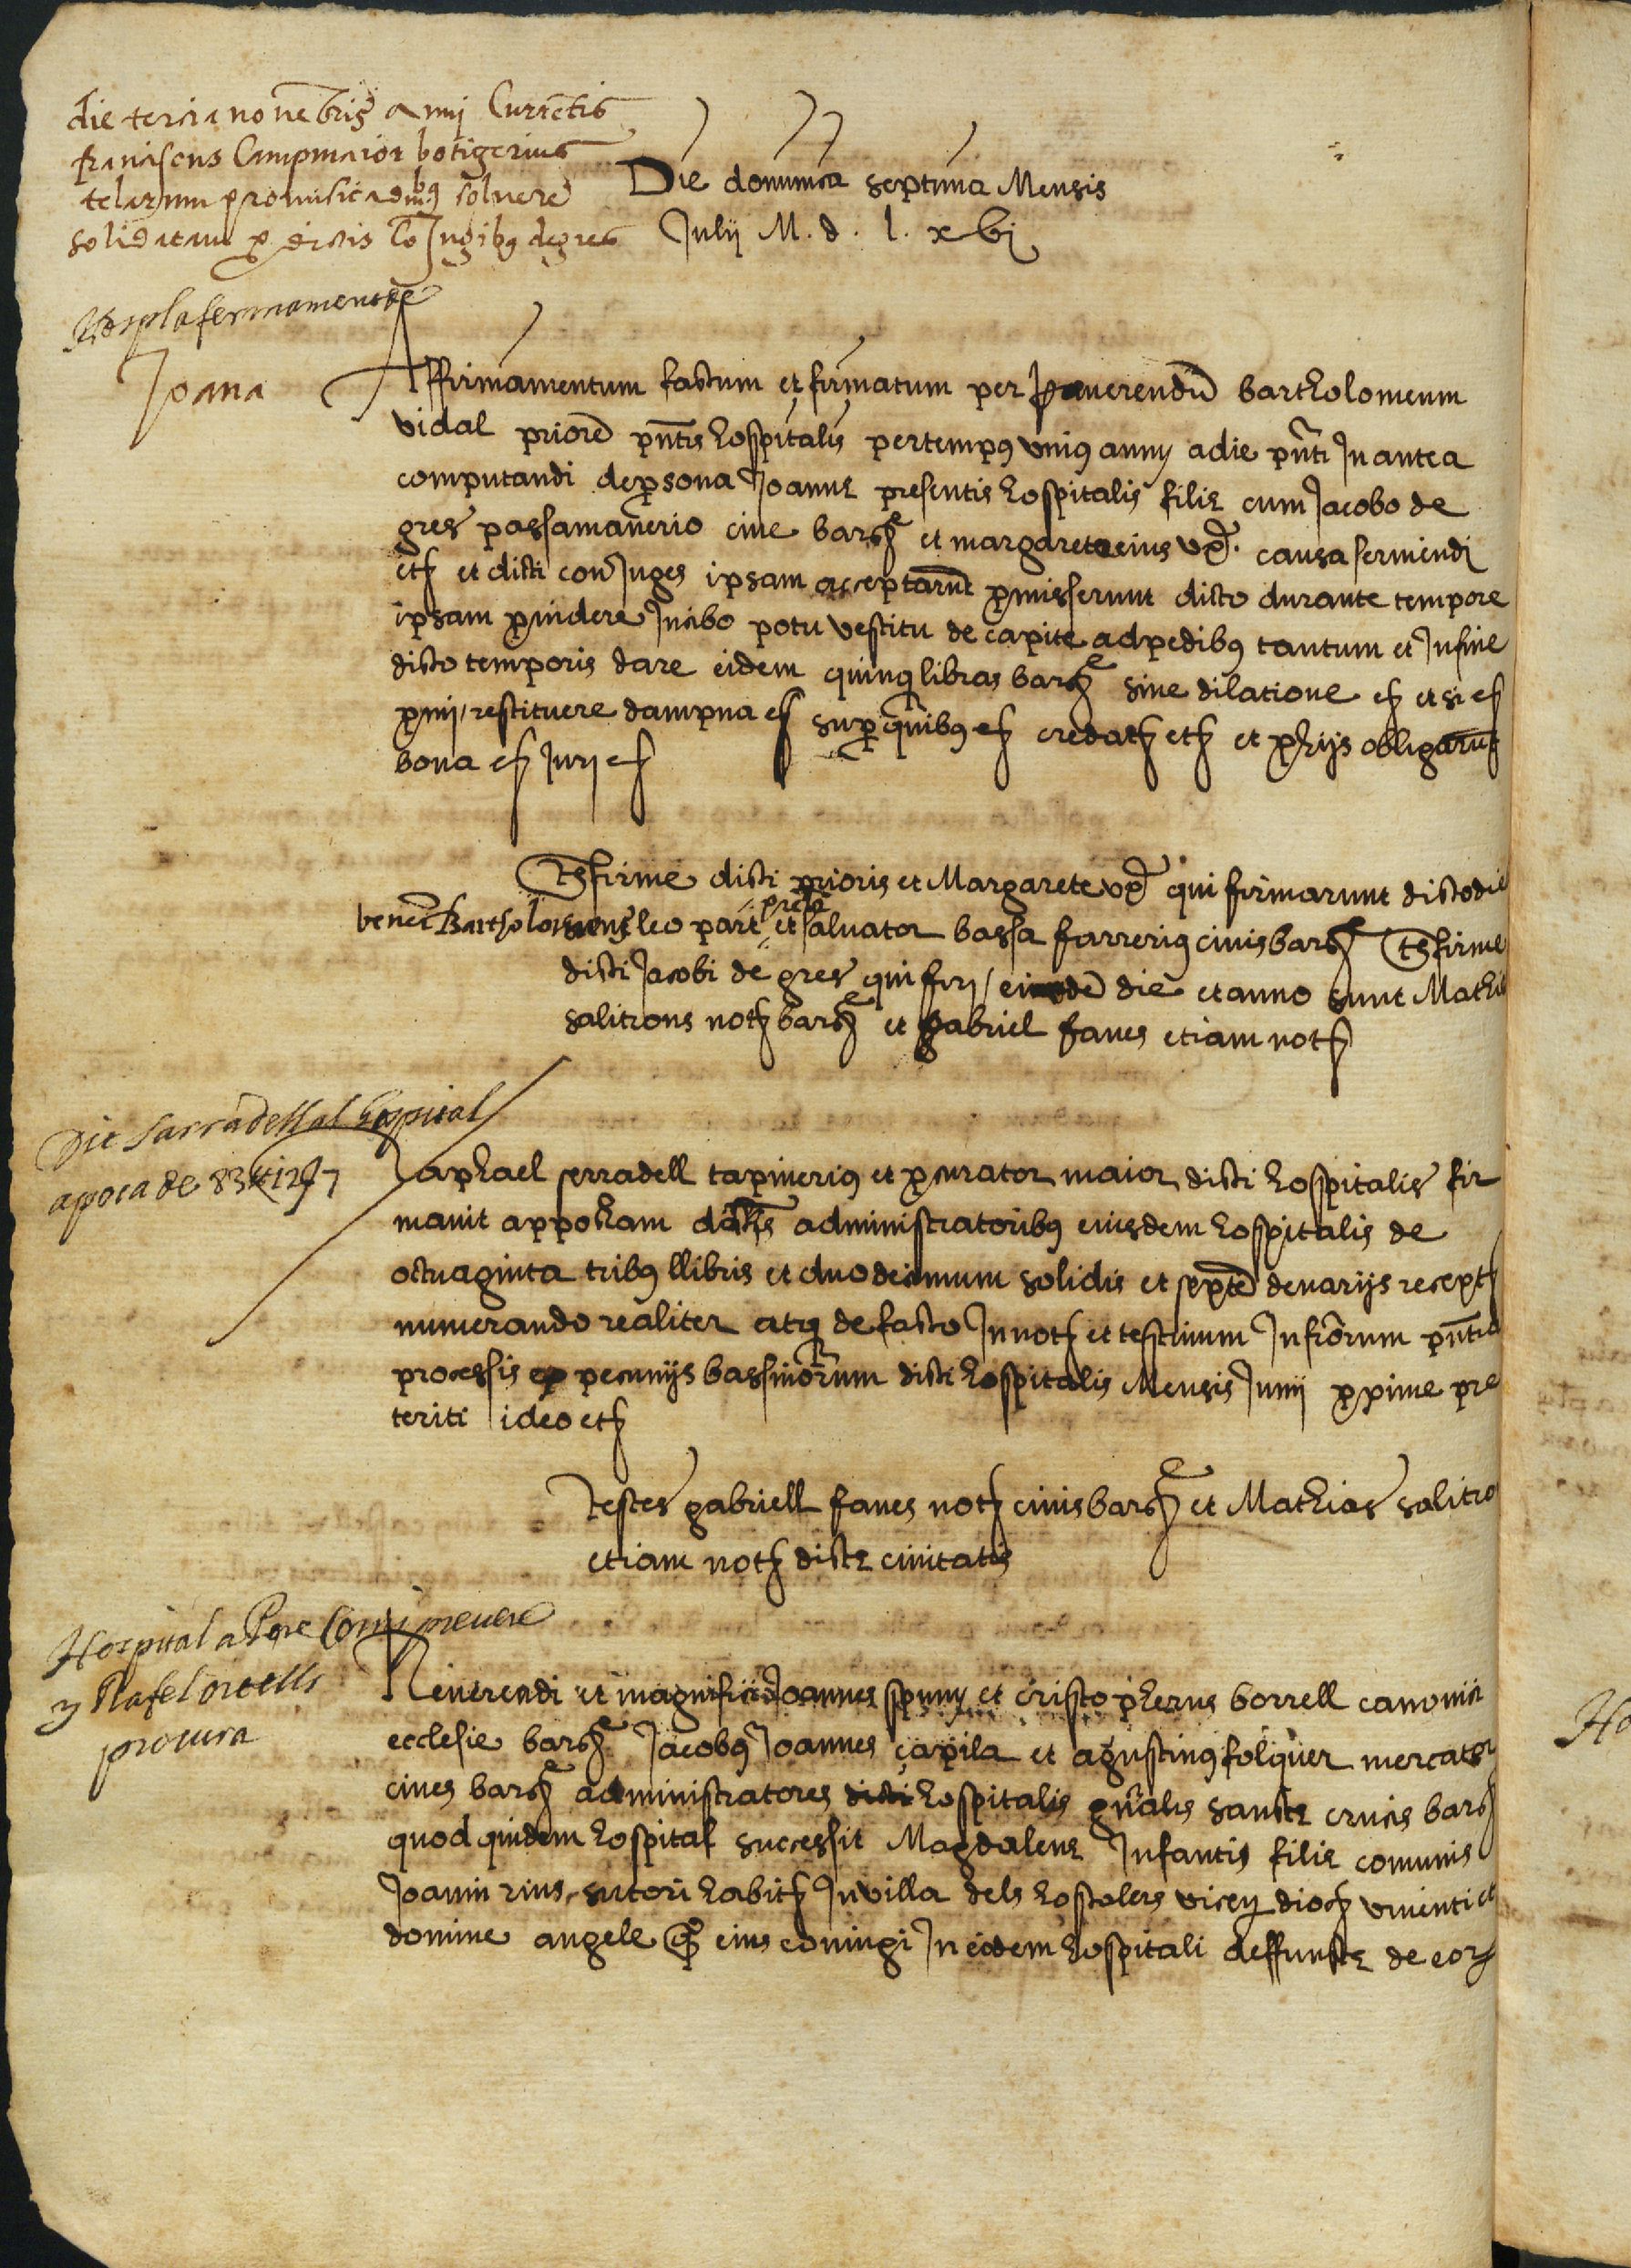 die tercia novebris Anni Curretis
franciscus Campmaior botigerius
telarum promisit admbq solvere
solidatam p dictis Coniugibq degres
Die dominica septima Mensis
Julij M. d. l. x vj
Hospl afermament de
Joana
Affirmamentum factum et firmatum per Reverendu bartholomeum
vidal priore pntis hospitalis per tempq uniq anny a die pnti In antea
computandi de psona Joanne presentis hospitalis filie cum Jacobo de
gres passamanerio cive barc et margareta eius vx. causa serviendi
etc et dicti coniuges ipsam acceptarut pmisserunt dicto durante tempore
ipsam pvidere In cibo potu vestitu de capite ad pedibq tantum et In fine
dicto temporis dare eidem quinq libras barc sine dilatione etc et si etc
pmi, restituere dampna etc sup quibq etc credatr etc et p hijs obligarut
bona etc Jury etc
Ts firme dicti prioris et Margarete vx qui firmarunt dicto die
venec Bartholomeus leo part et salvator bassa farrerig civis barc Ts firme
dicti Jacobi de gres qui firy, eiusde die et anno sunt Mathis
salitrons notr barc et gabriel faves etiam notr
Die sarradell al hospital
apoca de 83 ll 12 s 7
Raphael serradell tapinerig et pcurator maior dicti hospitalis fir
mavit appocham dictis administratoribq eiusdem hospitalis de
octuaginta tribq llibris et duodecimum solidis et septe denarijs recept
numerando realiter atq de facto In notr et testium Infrorum pntia
processis ex pecunijs bassinorum dicti hospitalis Mensis Junij pxime pre
teriti ideo etc
Testes gabriell faves notr civis barc et Mathias salitro
etiam notr dicte civitatis
Hospital a Pere Comi prevere
y Rafel ortells
procura
Reverendi et magnifici Joannes spuny et cristopherus borrell canonici
ecclesie barc Jacobq Joannes çapila et agustinq folquer mercator
cives barc administratores dicti hospitalis gnalis sancte crucis barc
quod quidem hospital successit Magdalene Infantis filie comunis
Joanni rius, sutori habitr In villa dels hostolers vicen dioc viventi et
domine angele qo eius coniugi In eodem hospitali deffuncte de cor